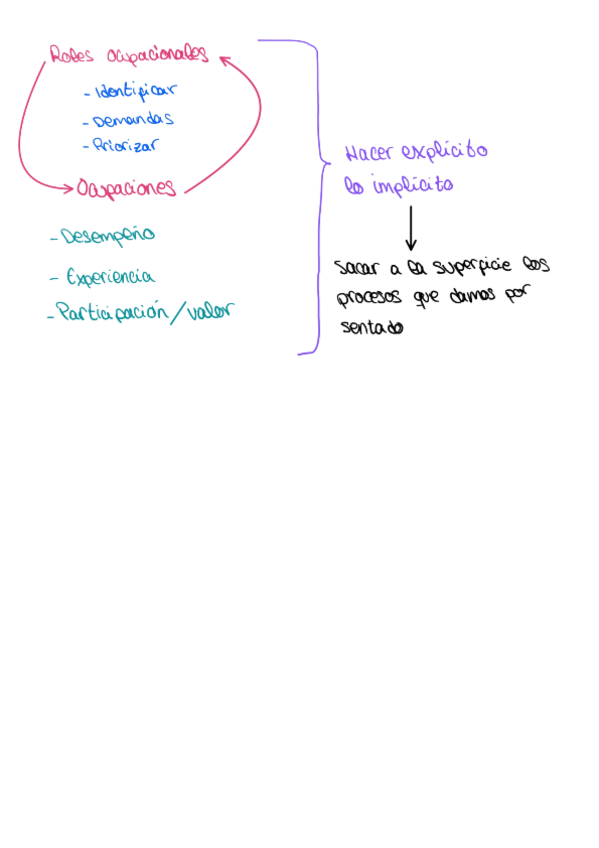 Roles ocupacionales
- Identificar
- Demandas
- Priorizar
Ocupaciones
- Desempeño
- Experiencia
- Participación/valor
Hacer explícito
lo implícito
Sacar a la superficie los
procesos que damos por
sentado